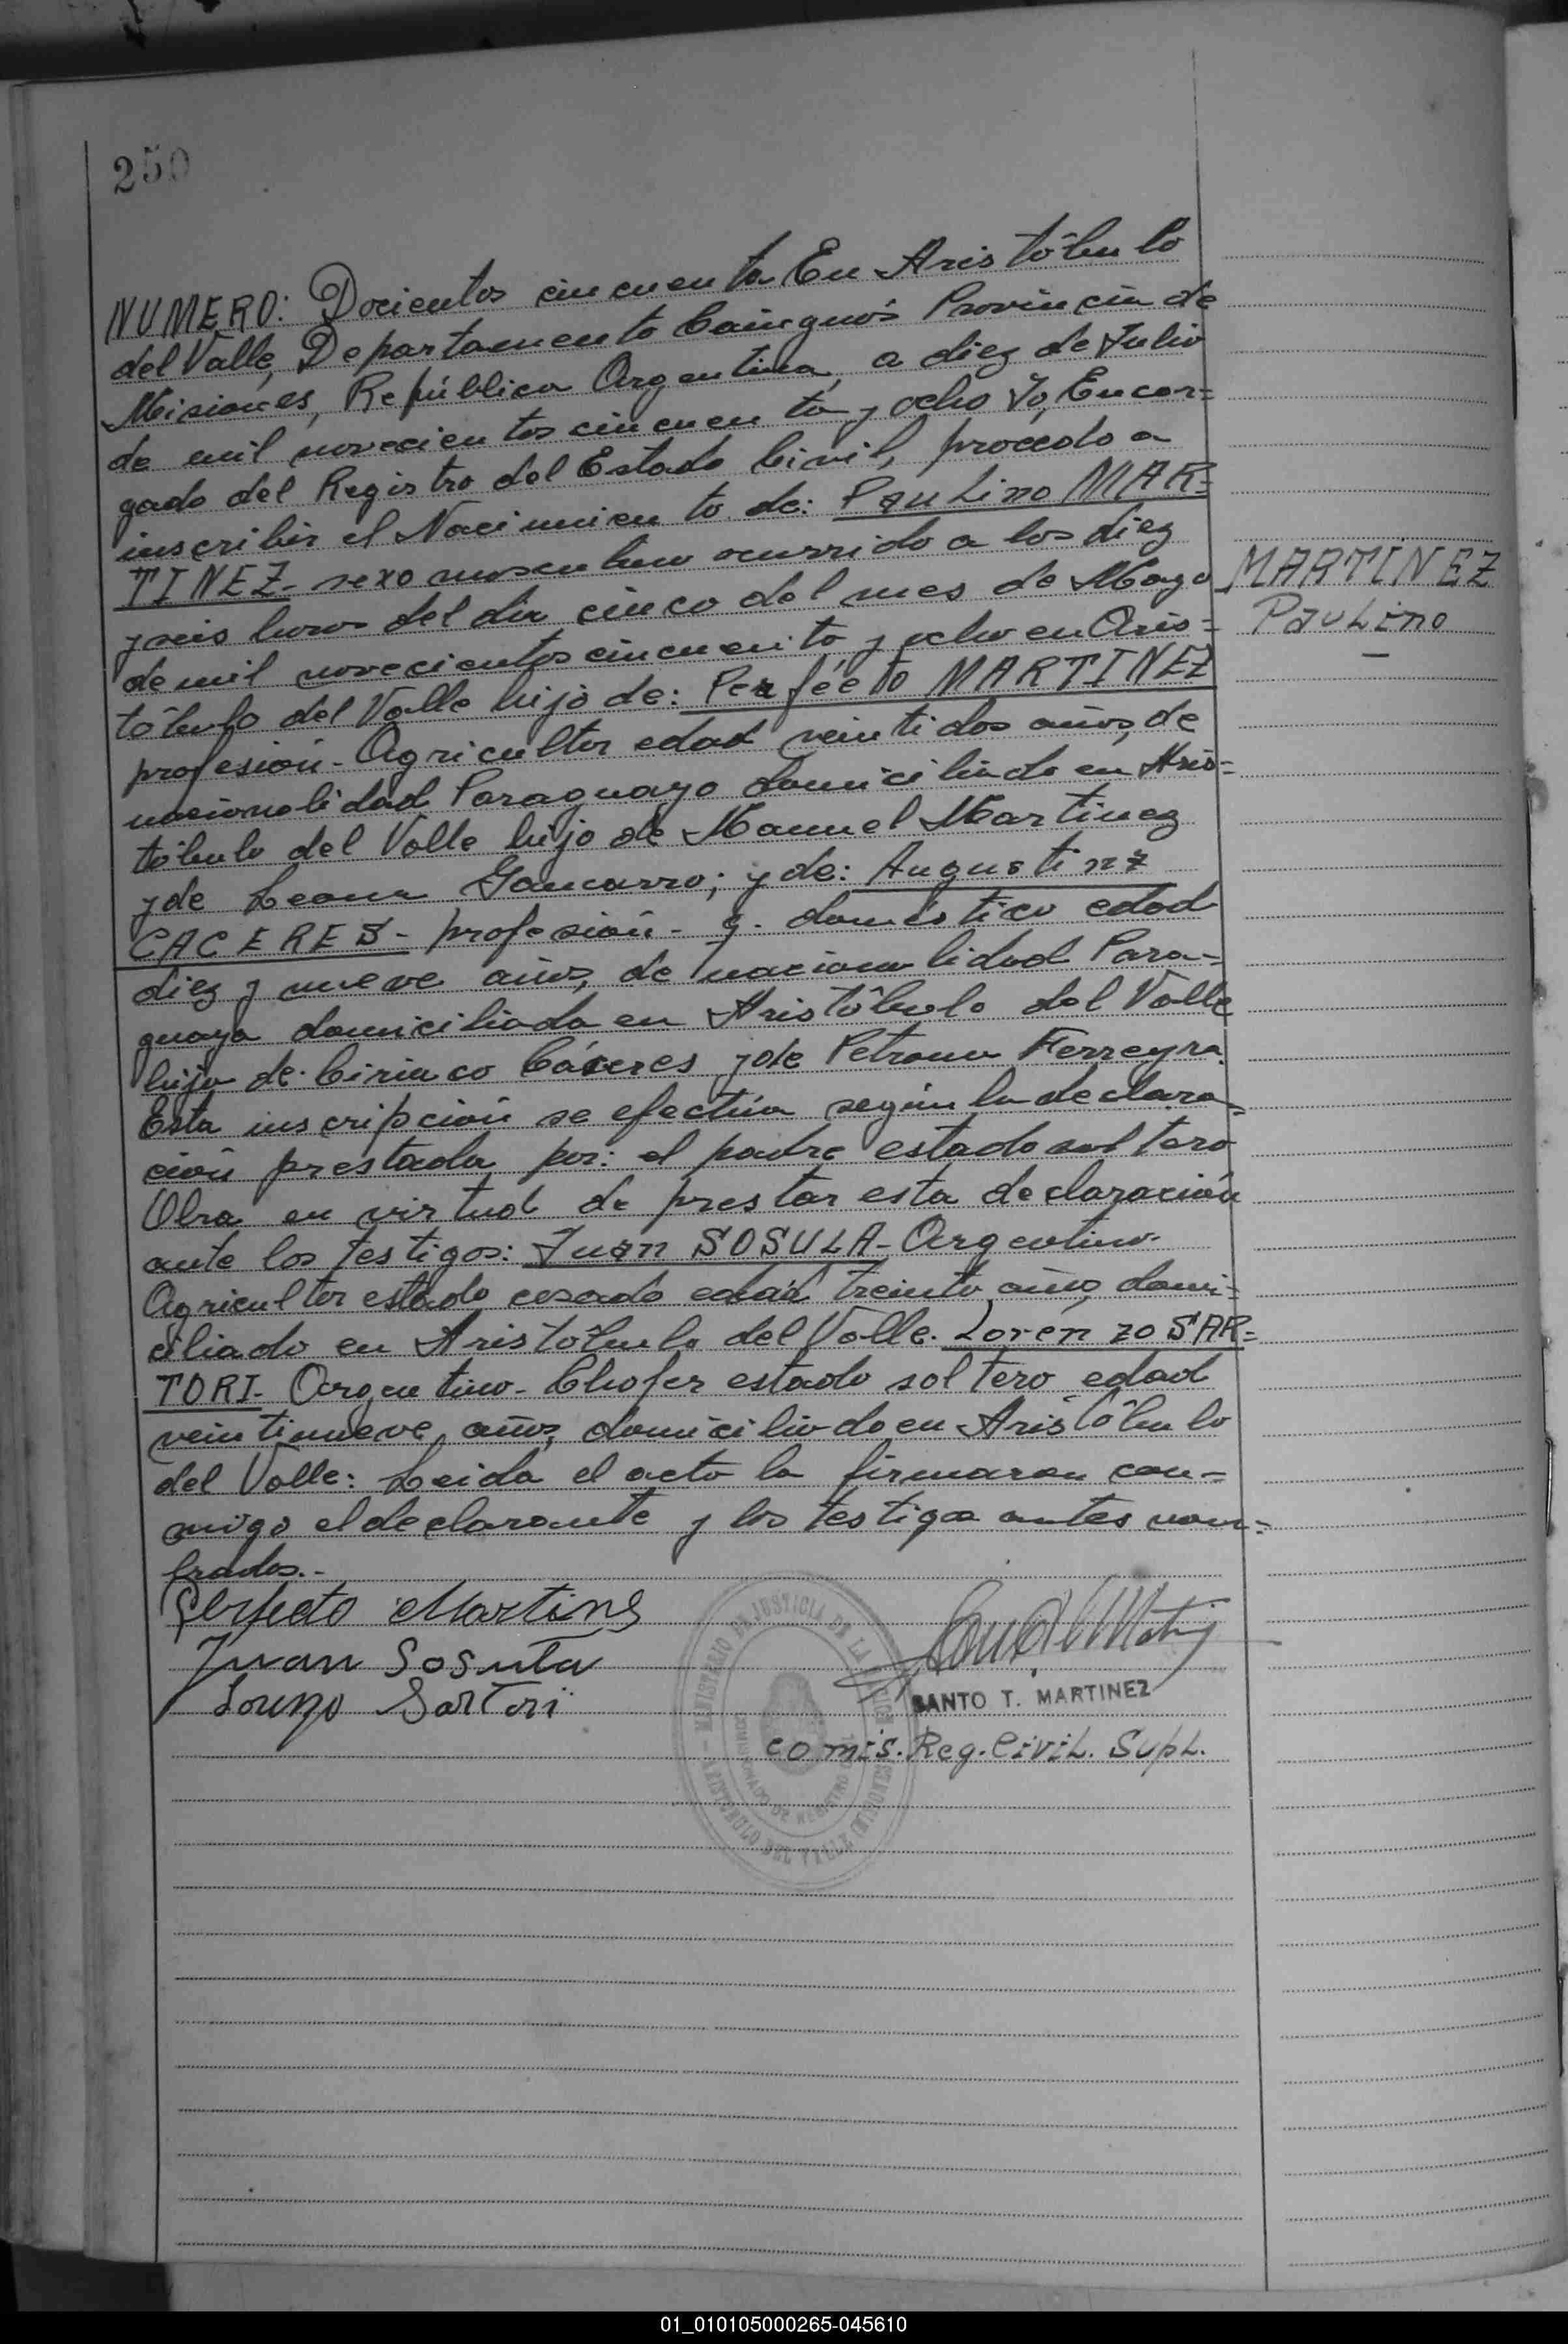 250
NUMERO: Docientos cincuenta En Aristóbulo
del Valle, Departamento Cainguás Provincia de
Misiones, República Argentina, a diez de Julio
de mil novecientos cincuenta y ocho Yo, Encar=
gado del Registro del Estado Civil, procedo a
inscribir el Nacimiento de: Paulino MAR=
TINEZ- sexo masculino ocurrido a los diez
y seis horas del día cinco del mes de Mayo
MARTINEZ
Paulino
de mil novecientos cincuenta y ocho en Aris=
tóbulo del Valle hijo de: Perfécto MARTINEZ
profesión- Agricultor edad veintidos años, de
nacionalidad Paraguayo domiciliado en Aris=
tóbulo del Valle hijo de Manuel Martinez
y de Leona; y de: Augustina
CACERES- profesión- q. doméstico edad
diez y nueve años, de nacionalidad Para-
guaya domiciliada en Aristóbulo del Valle
hija de Ciriaco Cáceres y de Petrona Ferreyra.
Esta inscripción se efectúa según la declara=
ción prestada por: el padre estado soltero
Obra en virtud de prestar esta declaración
ante los testigos: Juan SOSULA- Argentino-
Agricultor estado casado edad treinta años, domi=
ciliado en Aristóbulo del Valle. Lorenzo SAR=
TORI- Argentino- Chofer estado soltero edad
veintinueve años, domiciliado en Aristóbulo
del Valle: Leida el acto la firmaron con-
migo el declarante y los testigos antes nom=
brados.-
Perfecto Martins
Juan Sosula
Lorenzo Sartori
SANTO T. MARTINEZ
comis. Reg. Civil. Supl.
MINISTERIO DE JUSTICIA DE LA
ARISTOBULO DEL VALLE (MISIONES)
01_010105000265-045610